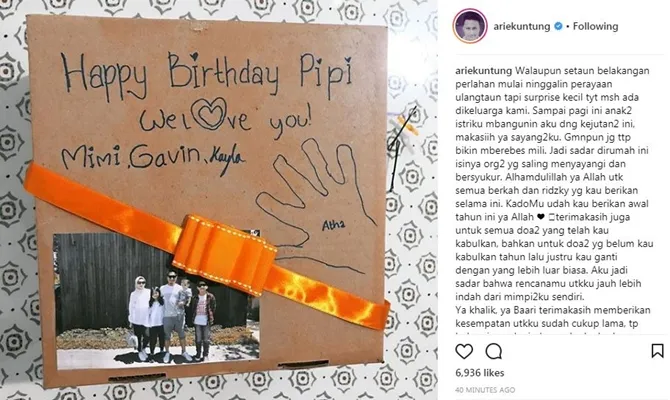 Happy Birthday Pipi
We L♡ve you!
Mimi, Gavin, Kayla
Atha
ariekuntung • Following
ariekuntung Walaupun setaun belakangan
perlahan mulai ninggalin perayaan
ulangtaun tapi surprise kecil tyt msh ada
dikeluarga kami. Sampai pagi ini anak2
istriku mbangunin aku dng kejutan2 ini,
makasiih ya sayang2ku. Gmnpun jg ttp
bikin mberebes mili. Jadi sadar dirumah ini
isinya org2 yg saling menyayangi dan
bersyukur. Alhamdulillah ya Allah utk
semua berkah dan ridzky yg kau berikan
selama ini. KadoMu udah kau berikan awal
tahun ini ya Allah ❤ terimakasih juga
untuk semua doa2 yang telah kau
kabulkan, bahkan untuk doa2 yg belum kau
kabulkan tahun lalu justru kau ganti
dengan yang lebih luar biasa. Aku jadi
sadar bahwa rencanamu utkku jauh lebih
indah dari mimpi2ku sendiri.
Ya khalik, ya Baari terimakasih memberikan
kesempatan utkku sudah cukup lama, tp
6,936 likes
40 MINUTES AGO